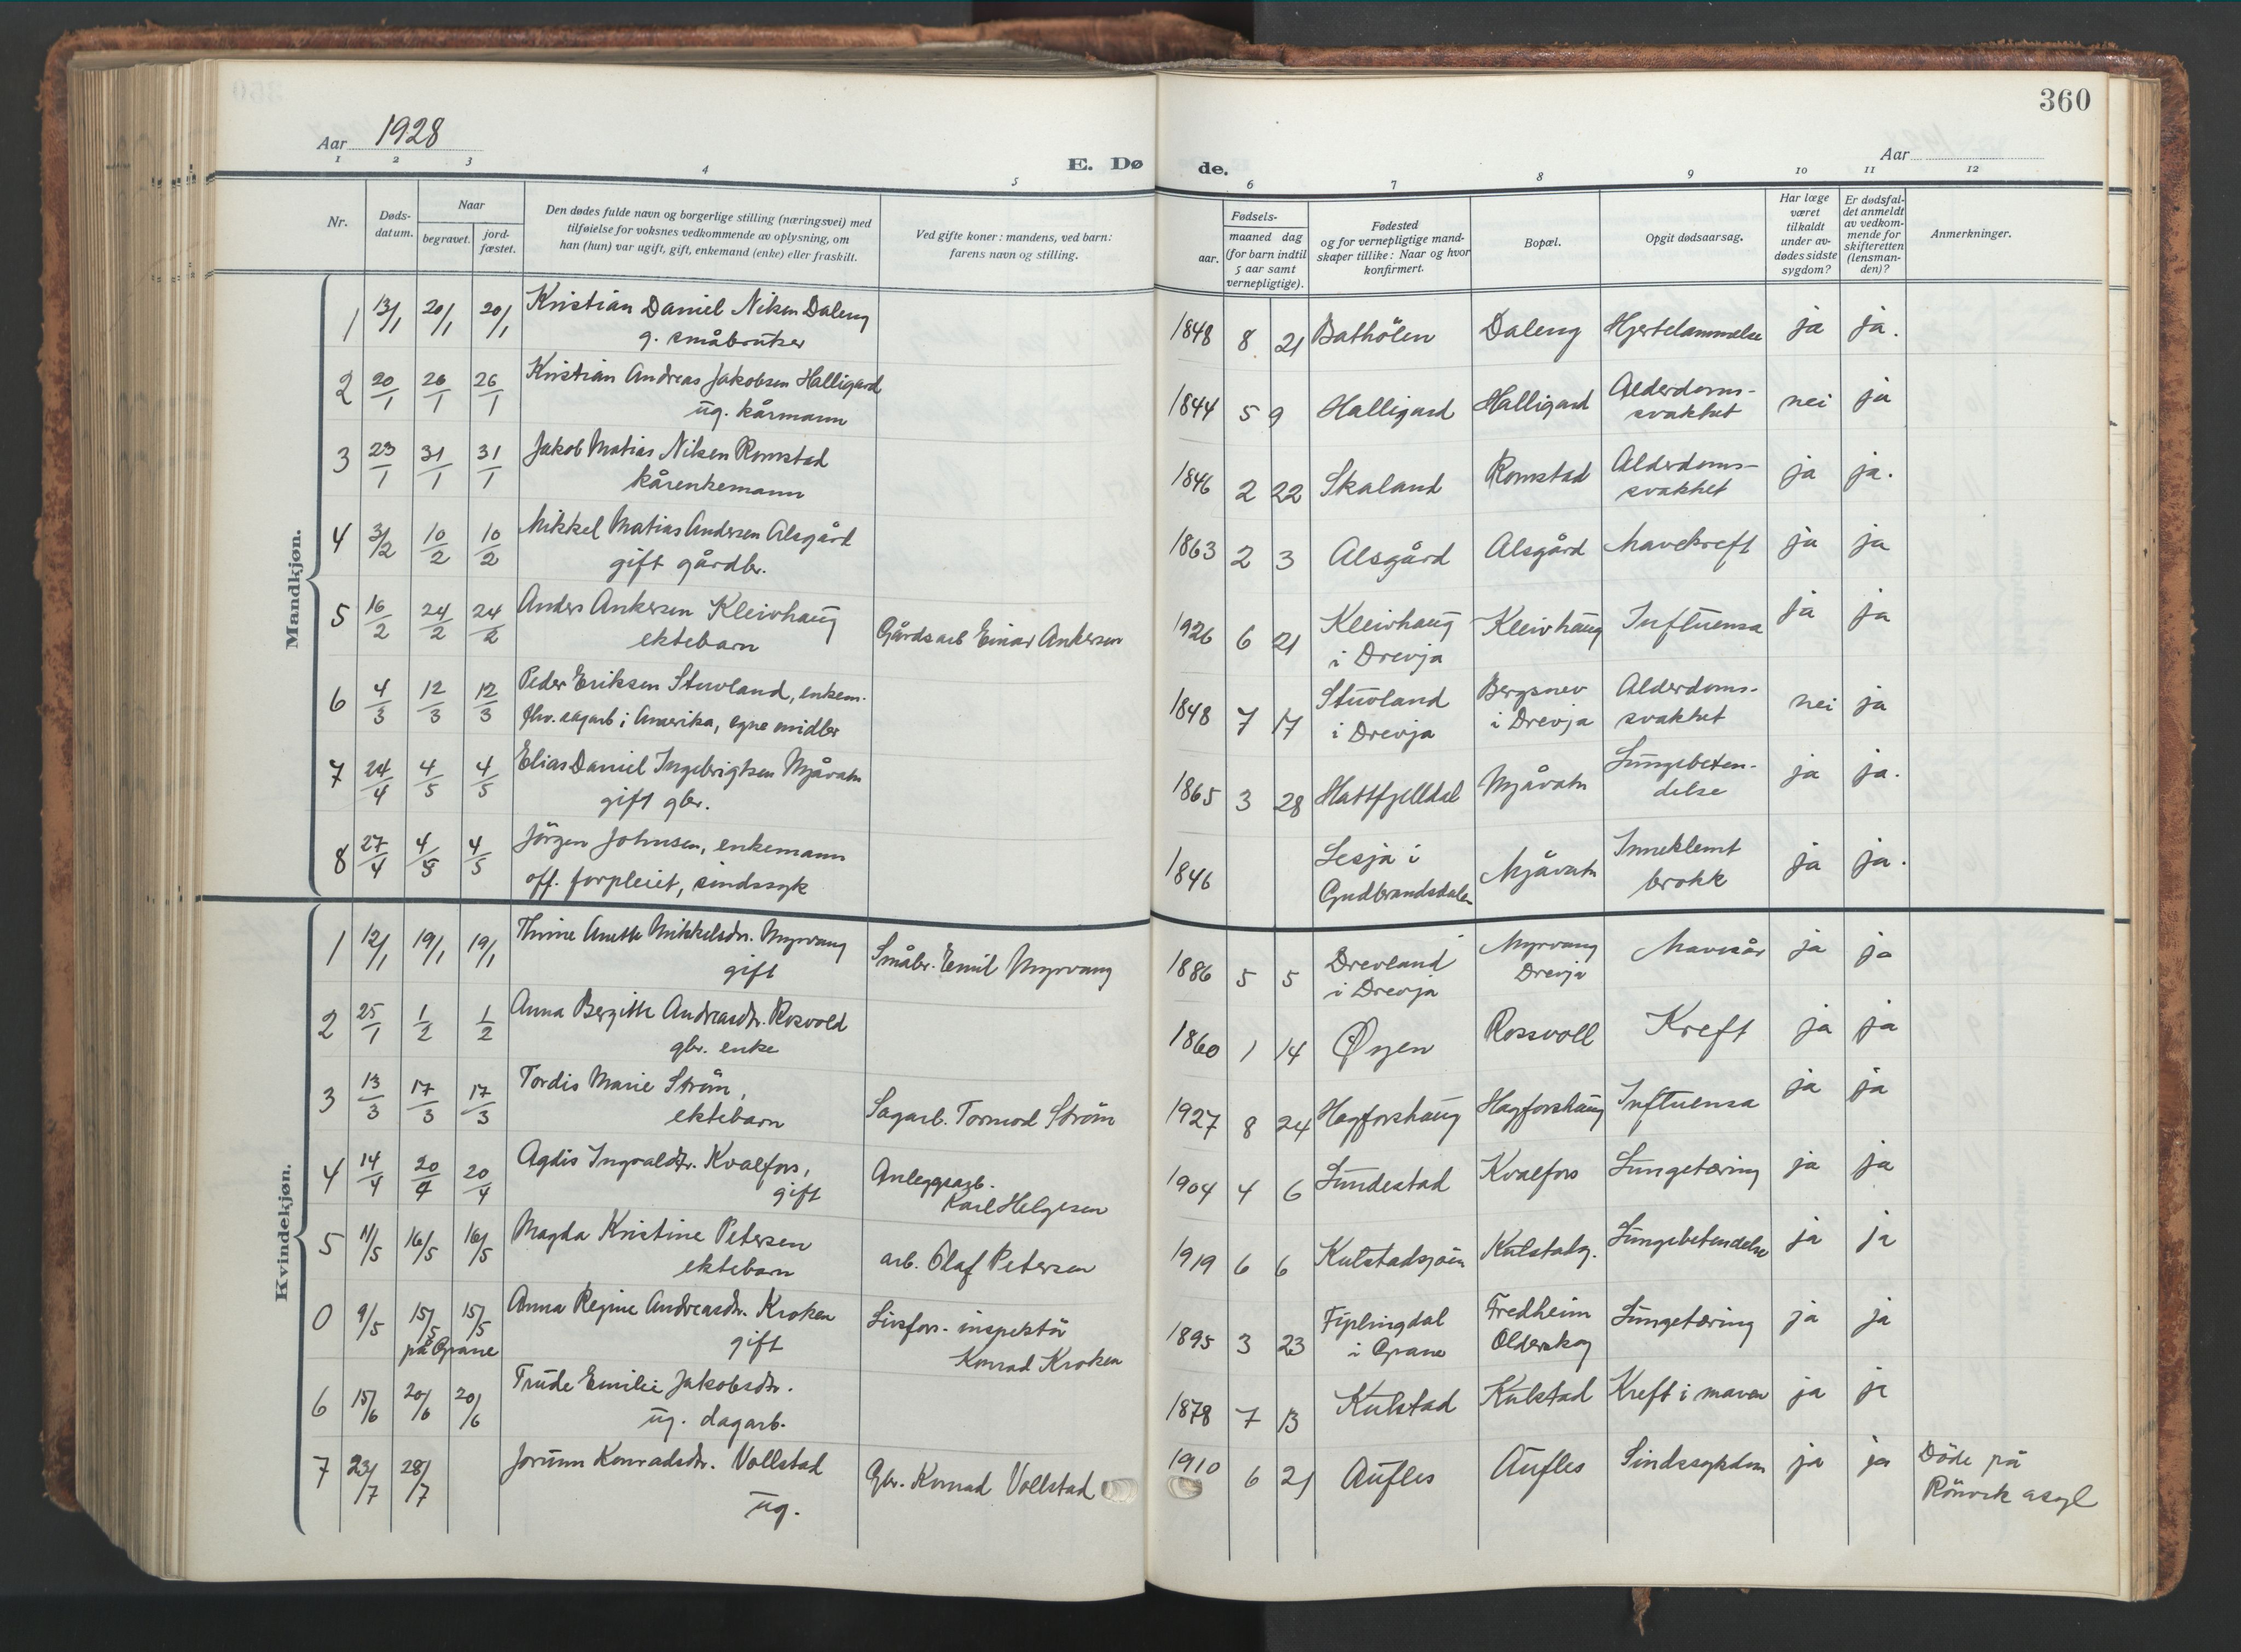 360
Aar 1928
Aar
E. Døde.
1 2 3 4 5 6 7 8 9 10 11 12
Nr.
Døds-
datum.
Naar
begravet.
jord-
fæstet.
Den dødes fulde navn og borgerlige stilling (næringsvei) med
tilføielse for voksnes vedkommende av oplysning, om
han (hun) var ugift, gift, enkemand (enke) eller fraskilt.
Ved gifte koner: mandens, ved barn:
farens navn og stilling.
Fødsels-
aar.
maaned dag
(for barn indtil
5 aar samt
vernepligtige).
Fødested
og for vernepligtige mand-
skaper tillike: Naar og hvor
konfirmert.
Bopæl.
Opgit dødsaarsag.
Har læge
været
tilkaldt
under av-
dødes sidste
sygdom?
Er dødsfal-
det anmeldt
av vedkom-
mende for
skifteretten
(lensman-
den)?
Anmerkninger.
Mandkjøn.
1 13/1 20/1 20/1 Kristian Daniel Nilsen Daleng 1848 8 21 Bathölen Daleng Hjertelammelse ja ja.
g. småbruker
2 20/1 26/1 26/1 Kristian Andreas Jakobsen Halligard 1844 5 9 Halligard Halligard Alderdoms- nei ja
ug. kårmann svakhet
3 23/1 31/1 31/1 Jakob Matias Nilsen Romstad 1846 2 22 Skaland Romstad Alderdoms- ja ja.
kårenkemann svakhet
4 3/2 10/2 10/2 Mikkel Matias Andersen Alsgård 1863 2 3 Alsgård Alsgård Mavekreft ja ja
gift gårdbr.
5 16/2 24/2 24/2 Anders Ankersen Kleivhaug Gårdsarb Einar Ankersen 1926 6 21 Kleivhaug Kleivhaug Influensa ja ja
ektebarn i Drevja
6 4/3 12/3 12/3 Peder Eriksen Stuvland, enkem. 1848 7 17 Stuvland Bergsnev Alderdoms- nei ja
fhv. sagarb i Amerika, egne midler i Drevja i Drevja svakhet
7 24/4 4/5 4/5 Elias Daniel Ingebrigtsen Mjåvatn 1865 3 28 Hattfjelldal Mjåvatn Lungebeten- ja ja.
gift gbr. delse
8 27/4 4/5 4/5 Jörgen Johnsen, enkemann 1846 Lesja i Mjåvatn Inneklemt ja ja.
off. forpleiet, sindssyk Gudbrandsdalen brokk
Kvindekjøn.
1 12/1 19/1 19/1 Thrine Anette Mikkelsdtr. Myrvang Småbr. Emil Myrvang 1886 5 5 Drevland Myrvang Mavesår ja ja
gift i Drevja Drevja
2 25/1 1/2 1/2 Anna Bergitte Andreasdtr. Rosvold 1860 1 14 Øyen Rossvoll Kreft ja ja
gbr. enke
3 13/3 17/3 17/3 Tordis Marie Ström, Sagarb. Tormod Ström 1927 8 24 Hagforshaug Hagforshaug Influensa ja ja
ektebarn
4 14/4 20/4 20/4 Agdis Ingvaldtr. Kvalfors, Anleggsarb. 1904 4 6 Lundestad Kvalfors Lungetæring ja ja
gift Karl Helgesen
5 11/5 16/5 16/5 Magda Kristine Petersen arb. Olaf Petersen 1919 6 6 Kulstadsjöen Kulstadsj. Lungebetendelse ja ja
ektebarn
0 9/5 15/5 15/5 Anna Regine Andreasdtr. Kroken Livsfors. inspektör 1895 3 23 Fiplingdal Fredheim Lungetæring ja ja
på Grane gift Konrad Kroken i Grane Olderskog
6 15/6 20/6 20/6 Trude Emilie Jakobsdtr. 1878 7 13 Kulstad Kulstad Kreft i maven ja ja
ug. dagarb.
7 23/7 28/7 Jorunn Konradsdtr. Vollstad Gbr. Konrad Vollstad 1910 6 21 Aufles Aufles Sindssykdom ja ja Döde på
ug. Rönvik asyl